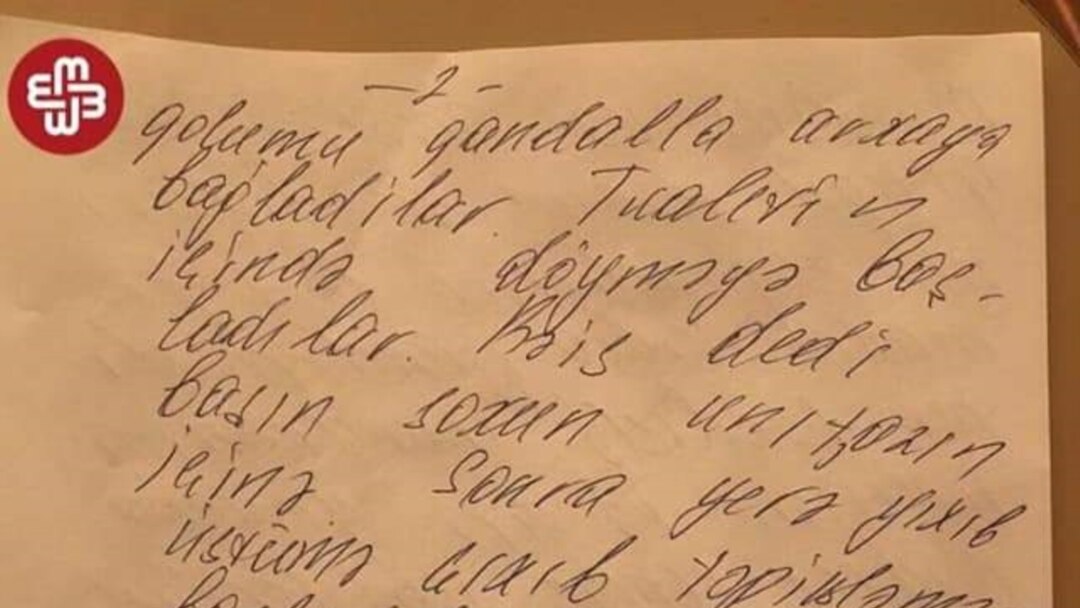 -2-
qolumu qandalla arxaya
bağladılar. Tualetin
içində döyməyə baş-
ladılar. Rəis dedi
başın soxun unitazın
içinə Sonra yerə yıxıb
üstümə çıxıb təpikləmə